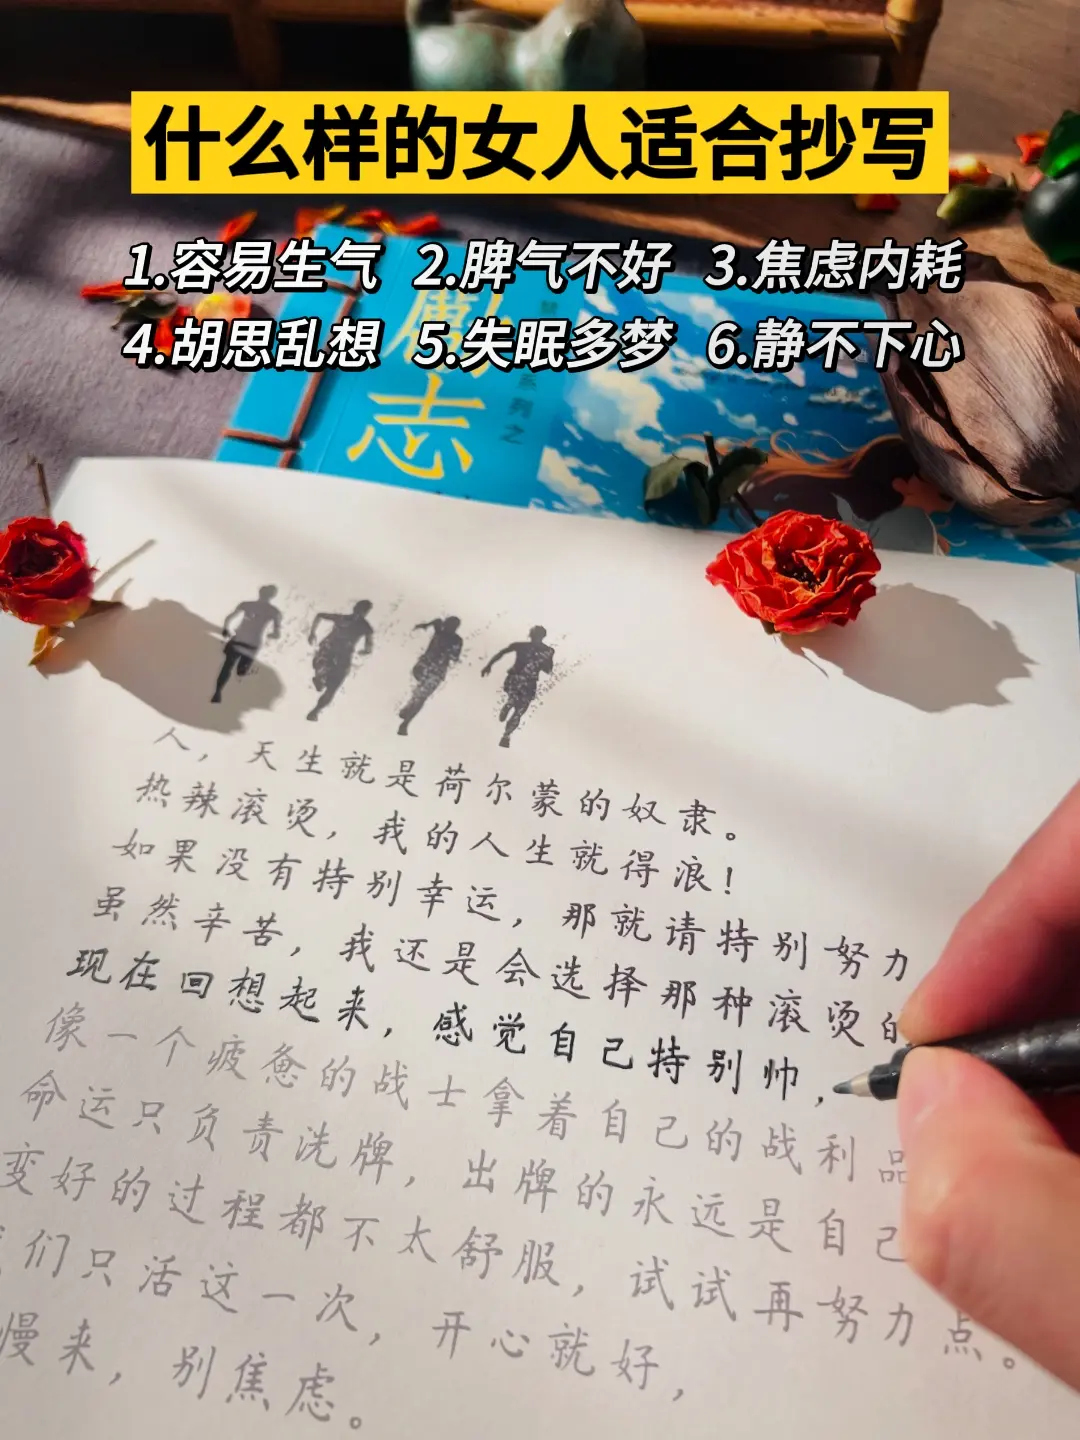 什么样的女人适合抄写
1.容易生气 2.脾气不好 3.焦虑内耗
4.胡思乱想 5.失眠多梦 6.静不下心
励志
系列之
人，天生就是荷尔蒙的奴隶。
热辣滚烫，我的人生就得浪！
如果没有特别幸运，那就请特别努力
虽然辛苦，我还是会选择那种滚烫的
现在回想起来，感觉自己特别帅，
像一个疲惫的战士拿着自己的战利品
命运只负责洗牌，出牌的永远是自己
变好的过程都不太舒服，试试再努力点。
们只活这一次，开心就好，
慢来，别焦虑。